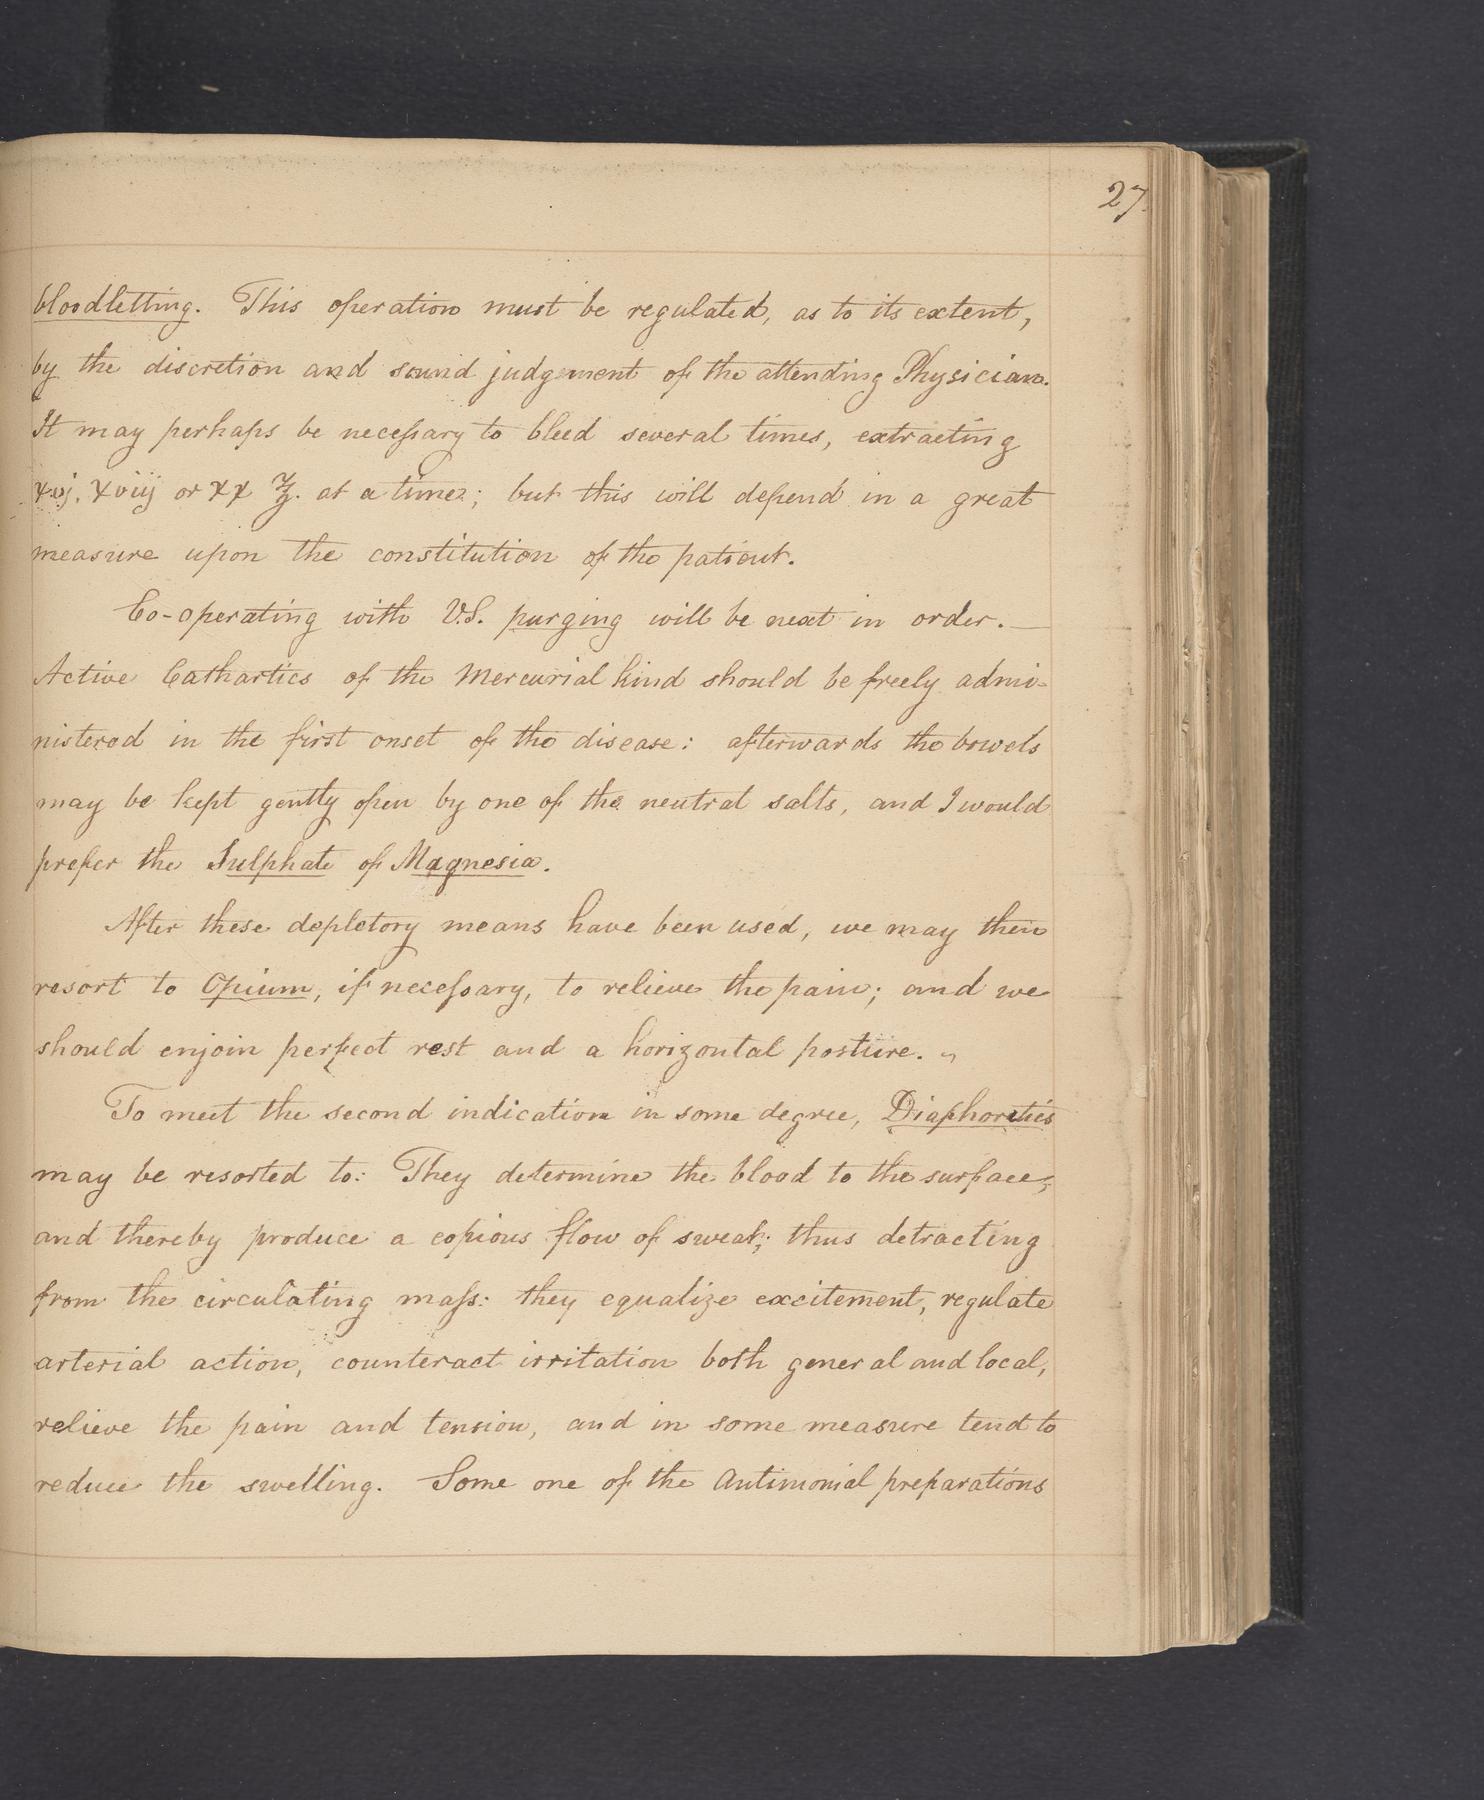 27.
bloodletting. This operation must be regulated, as to its extent,
by the discretion and sound judgement of the attending Physician.
It may perhaps be necessary to bleed several times, extracting
xvj, xviij or xx ℥. at a time; but this will depend in a great
measure upon the constitution of the patient.
Co-operating with V.S. purging will be next in order.—
Active Cathartics of the Mercurial kind should be freely admi-
nistered in the first onset of the disease: afterwards the bowels
may be kept gently open by one of the neutral salts, and I would
prefer the Sulphate of Magnesia.
After these depletory means have been used, we may then
resort to Opium, if necessary, to relieve the pain; and we
should enjoin perfect rest and a horizontal posture.
To meet the second indication in some degree, Diaphoretics
may be resorted to: They determine the blood to the surface,
and thereby produce a copious flow of sweat; thus detracting
from the circulating mass: they equalize excitement, regulate
arterial action, counteract irritation both general and local,
relieve the pain and tension, and in some measure tend to
reduce the swelling. Some one of the Antimonial preparations